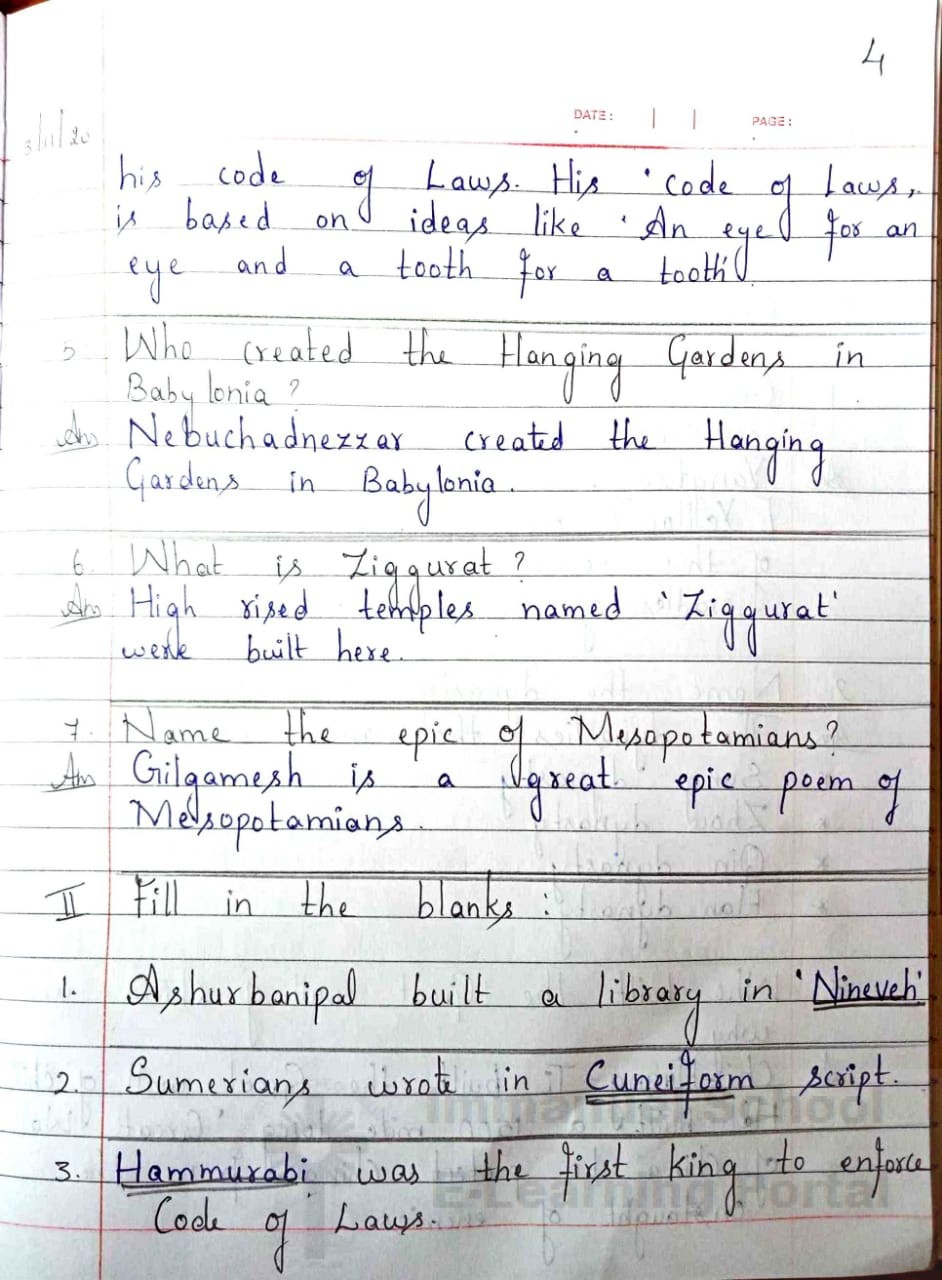 4
DATE: | | PAGE:
3/11/20
his code of Laws. His 'code of Laws,
is based on ideas like 'An eye for an
eye and a tooth for a tooth'.
5 Who created the Hanging Gardens in
Babylonia?
Ans Nebuchadnezzar created the Hanging
Gardens in Babylonia.
6. What is Ziggurat?
Ans High rised temples named 'Ziggurat'
were built here.
7. Name the epic of Mesopotamians?
Ans Gilgamesh is a great epic poem of
Mesopotamians.
II Fill in the blanks:
1. Ashurbanipal built a library in 'Nineveh'
2. Sumerians wrote in Cuneiform script.
Immanuel School
3. Hammurabi was the first king to enforce
E-Learning Portal
Code of Laws.